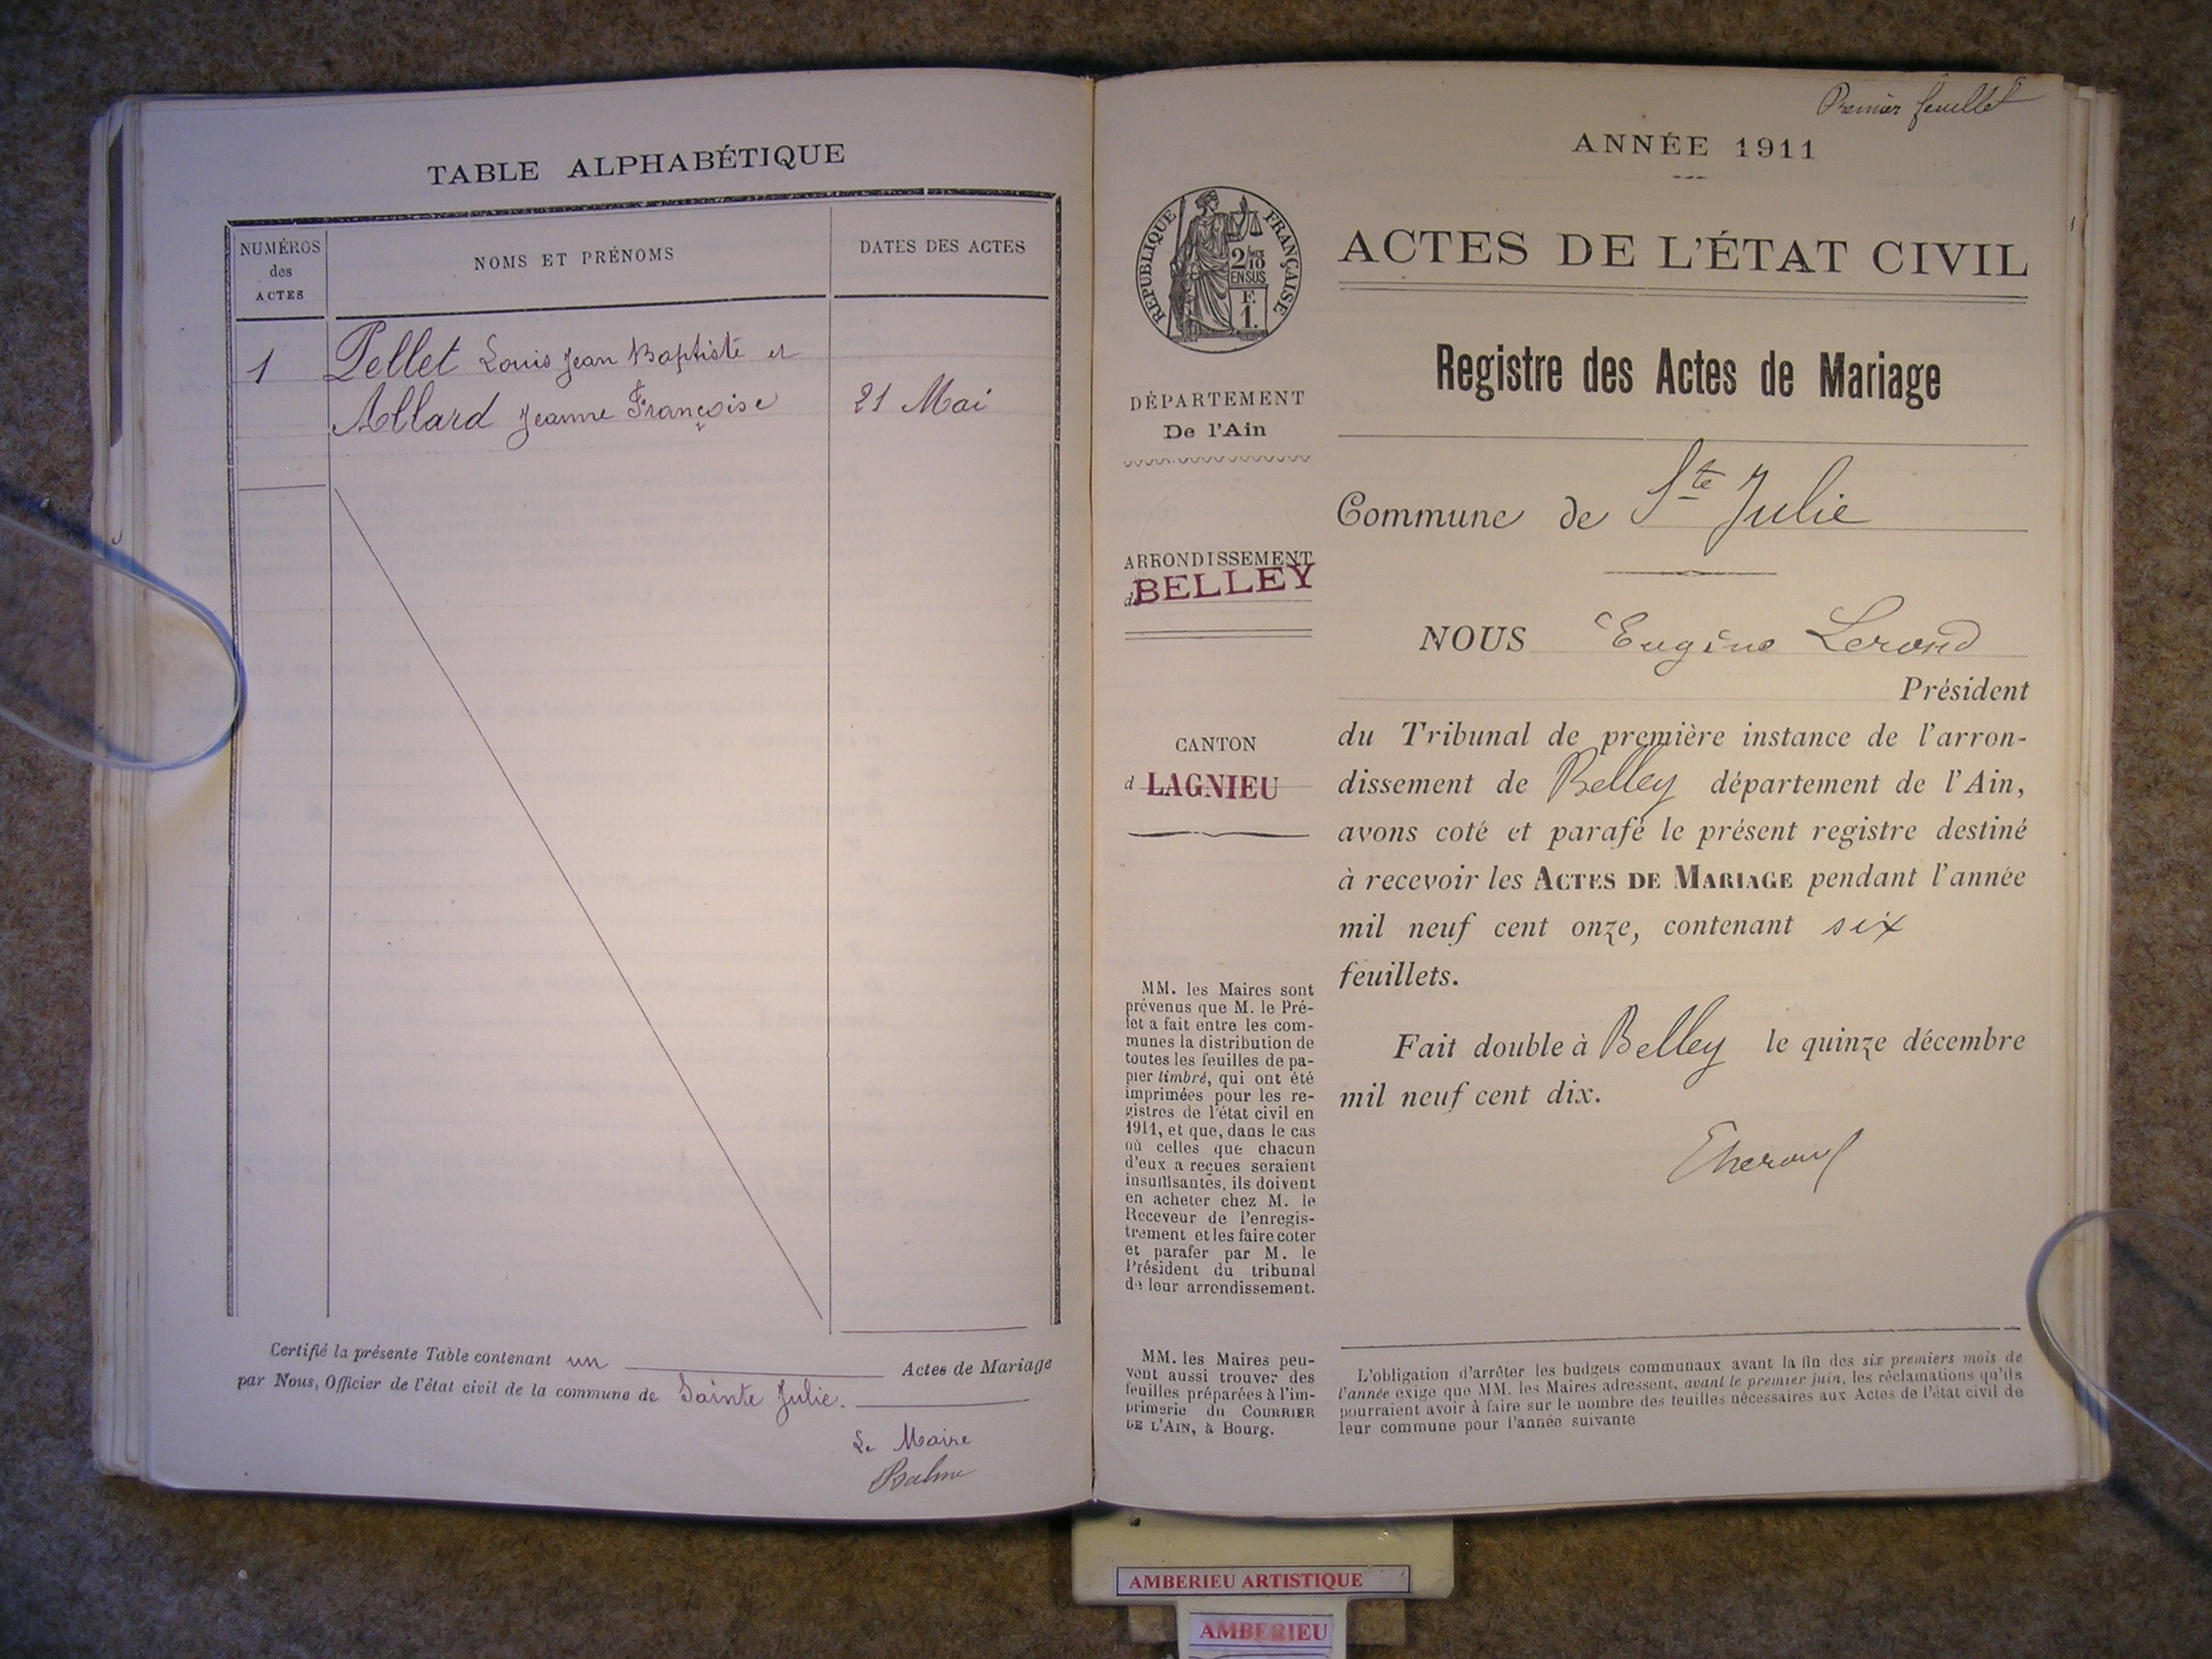 TABLE ALPHABÉTIQUE
NUMÉROS des ACTES
NOMS ET PRÉNOMS
DATES DES ACTES
1 Pellet Louis Jean Baptiste et
Allard Jeanne Françoise 21 Mai
Certifié la présente Table contenant un Actes de Mariage
par Nous, Officier de l'état civil de la commune de Sainte Julie.
Le Maire
Premier feuillet
ANNÉE 1911
RÉPUBLIQUE FRANÇAISE
2/10
EN SUS
F.
1.
ACTES DE L'ÉTAT CIVIL
Registre des Actes de Mariage
DÉPARTEMENT
De l'Ain
ARRONDISSEMENT
d BELLEY
CANTON
d LAGNIEU
MM. les Maires sont
prévenus que M. le Pré-
fet a fait entre les com-
munes la distribution de
toutes les feuilles de pa-
pier timbré, qui ont été
imprimées pour les re-
gistres de l'état civil en
1911, et que, dans le cas
où celles que chacun
d'eux a reçues seraient
insuffisantes, ils doivent
en acheter chez M. le
Receveur de l'enregis-
trement et les faire coter
et parafer par M. le
Président du tribunal
de leur arrondissement.
MM. les Maires peu-
vent aussi trouver des
feuilles préparées à l'im-
primerie du COURRIER
DE L'AIN, à Bourg.
Commune de Ste Julie
NOUS Eugène
Président
du Tribunal de première instance de l'arron-
dissement de Belley département de l'Ain,
avons coté et parafé le présent registre destiné
à recevoir les ACTES DE MARIAGE pendant l'année
mil neuf cent onze, contenant six
feuillets.
Fait double à Belley le quinze décembre
mil neuf cent dix.
L'obligation d'arrêter les budgets communaux avant la fin des six premiers mois de
l'année exige que MM. les Maires adressent, avant le premier juin, les réclamations qu'ils
pourraient avoir à faire sur le nombre des feuilles nécessaires aux Actes de l'état civil de
leur commune pour l'année suivante
AMBERIEU ARTISTIQUE
AMBERIEU